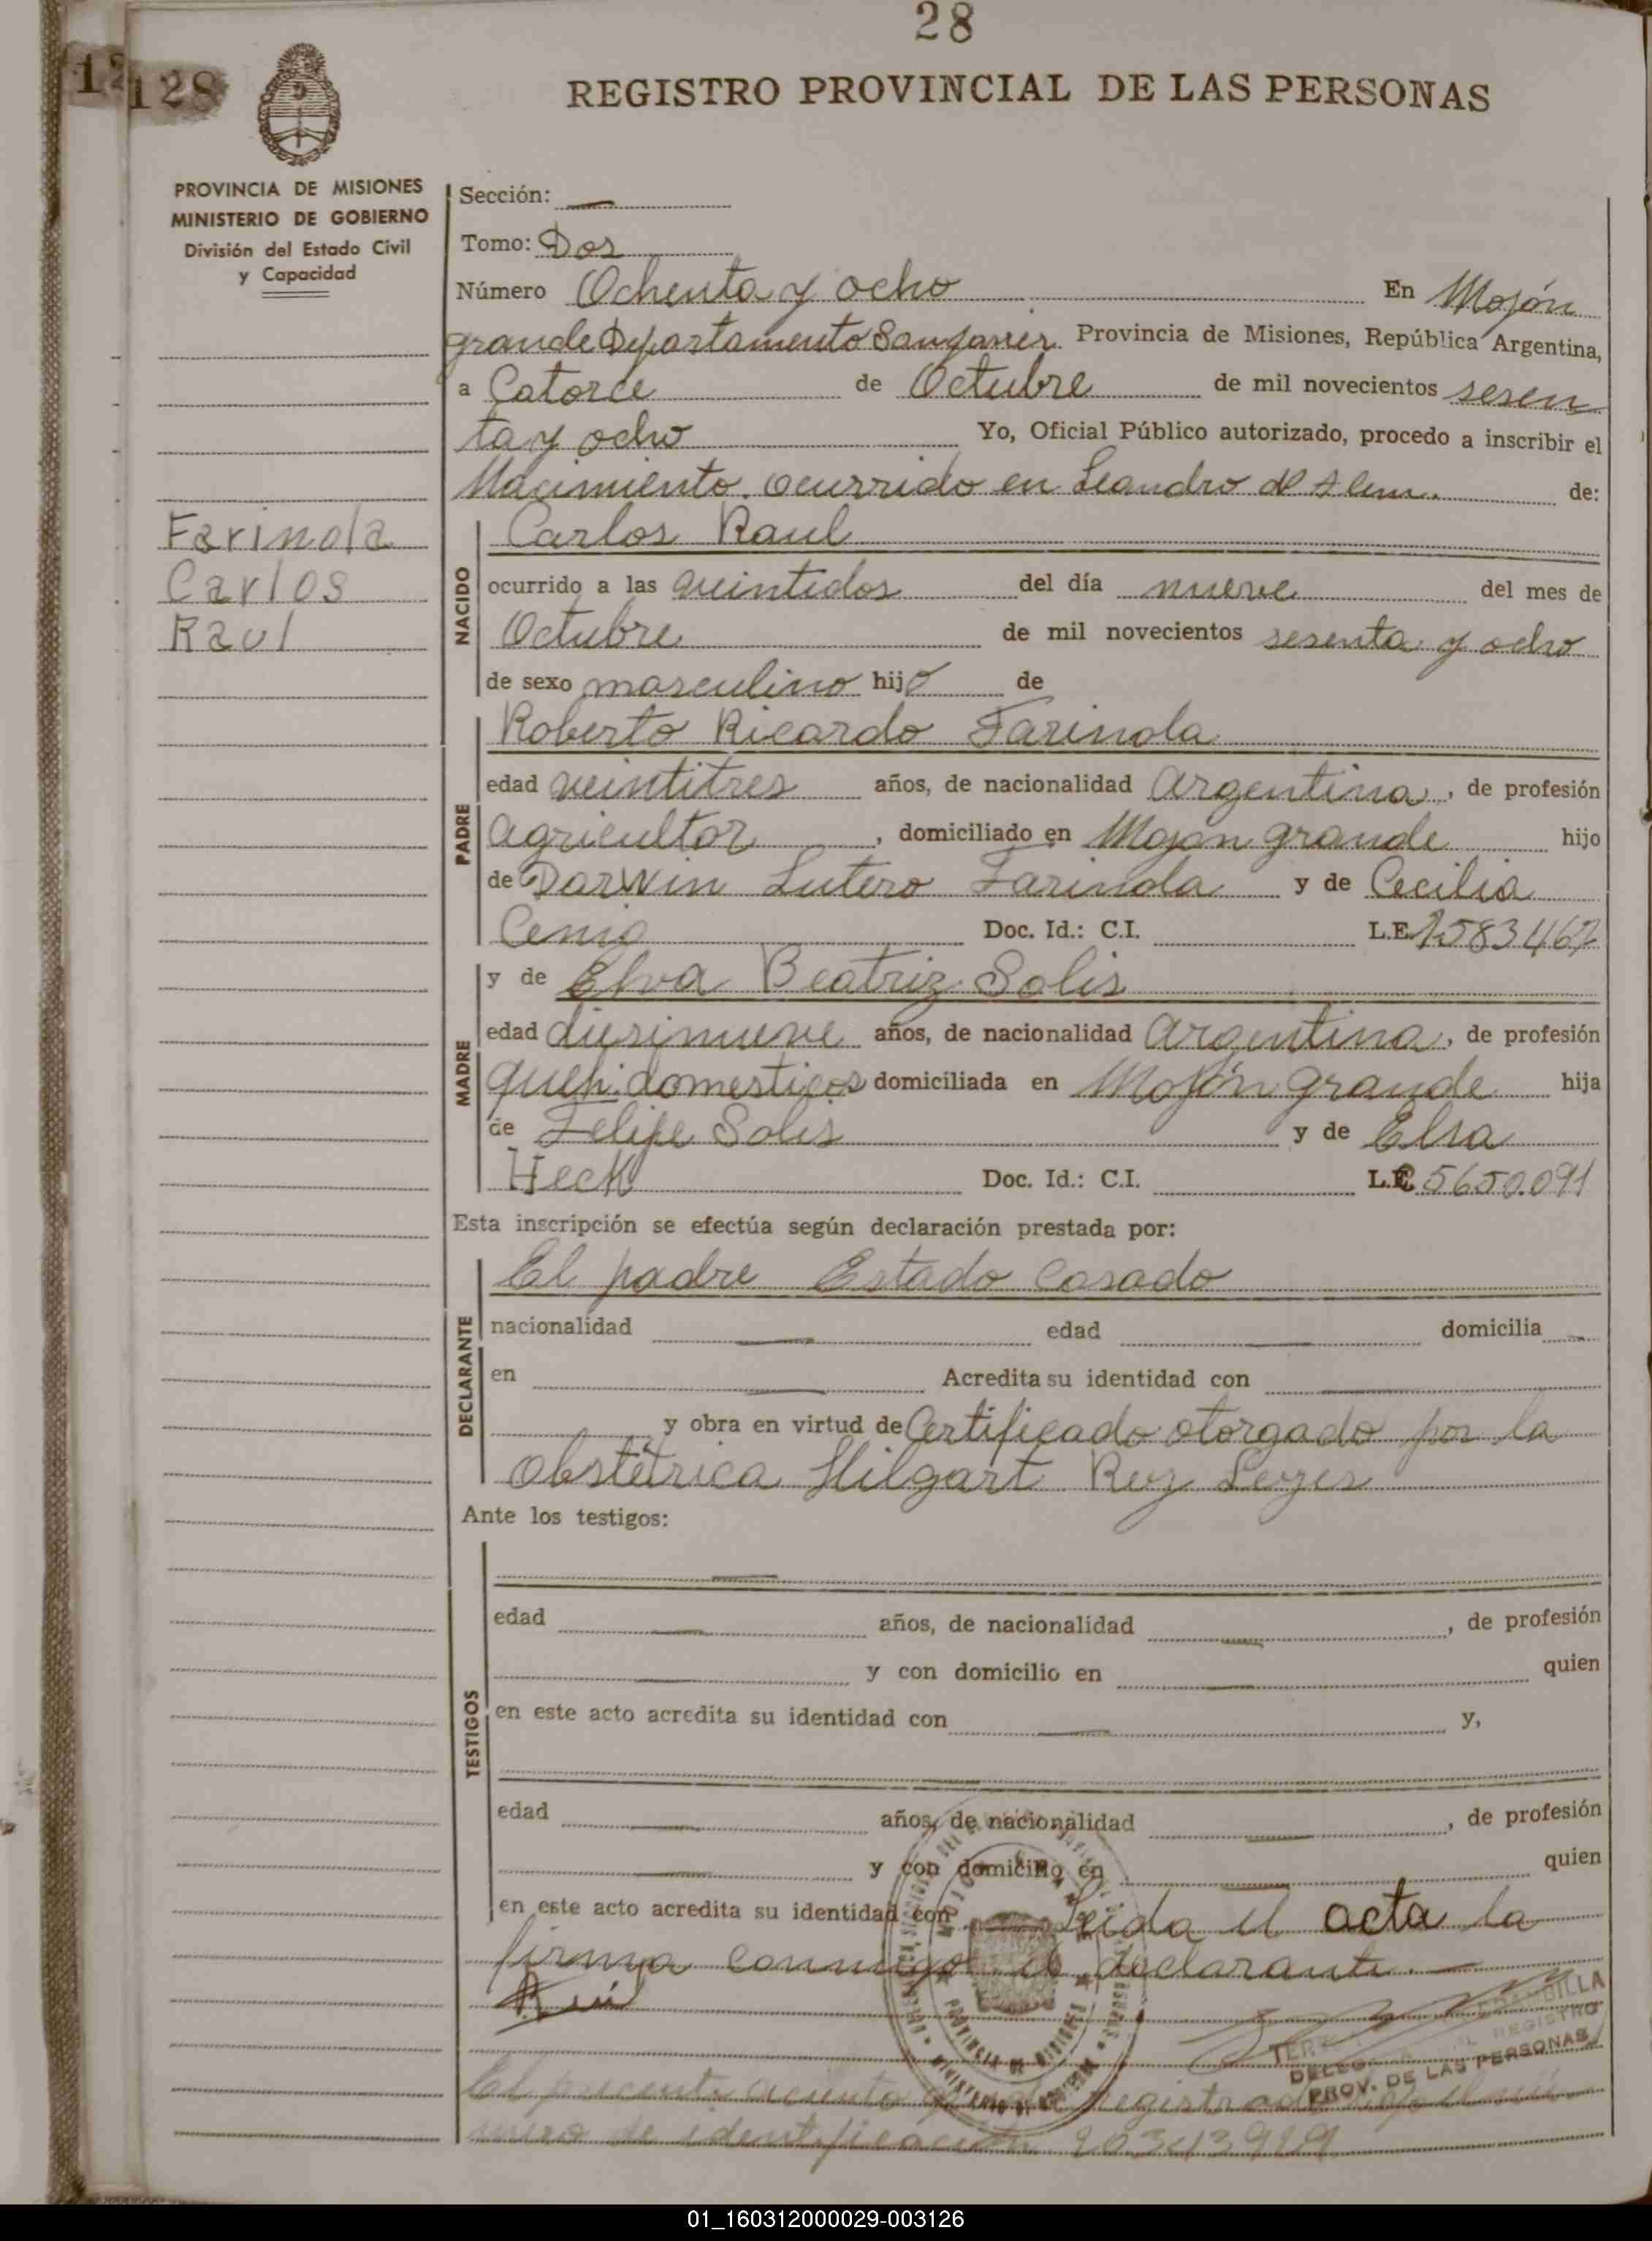 28
128
REGISTRO PROVINCIAL DE LAS PERSONAS
PROVINCIA DE MISIONES
MINISTERIO DE GOBIERNO
División del Estado Civil
y Capacidad
Farinola
Carlos
Raul
Sección: —
Tomo: Dos
Número Ochenta y ocho En Mojón
grande Departamento San Javier. Provincia de Misiones, República Argentina,
a Catorce de Octubre de mil novecientos sesen
ta y ocho Yo, Oficial Público autorizado, procedo a inscribir el
Nacimiento. ocurrido en Leandro N Alem. de:
NACIDO
Carlos Raul
ocurrido a las veintidos del día nueve del mes de
Octubre de mil novecientos sesenta y ocho
de sexo masculino hijo de
PADRE
Roberto Ricardo Farinola
edad veintitres años, de nacionalidad Argentina, de profesión
agricultor, domiciliado en Mojon grande hijo
de Darwin Lutero Farinola y de Cecilia
Doc. Id.: C.I. L.E. 7.583.467
MADRE
y de Elva Beatriz Solis
edad diesinueve años, de nacionalidad Argentina, de profesión
queh. domesticos domiciliada en Mojón grande hija
de Felipe Solis y de Elsa
Heck Doc. Id.: C.I. L.C. 5650.091
Esta inscripción se efectúa según declaración prestada por:
DECLARANTE
El padre Estado Casado
nacionalidad — edad — domicilia —
en — Acredita su identidad con —
y obra en virtud de Certificado otorgado por la
Obstétrica Hilgart
Ante los testigos:
TESTIGOS
—
edad — años, de nacionalidad —, de profesión
— y con domicilio en — quien
en este acto acredita su identidad con — y,
—
edad — años, de nacionalidad —, de profesión
— y con domicilio en — quien
en este acto acredita su identidad con — Leida el acta la
firma conmigo el declarante. —
PROVINCIA DE MISIONES
DEL REGISTRO
PROV. DE LAS PERSONAS
El presente registrado bajo el nú
mero de identificación
01_160312000029-003126